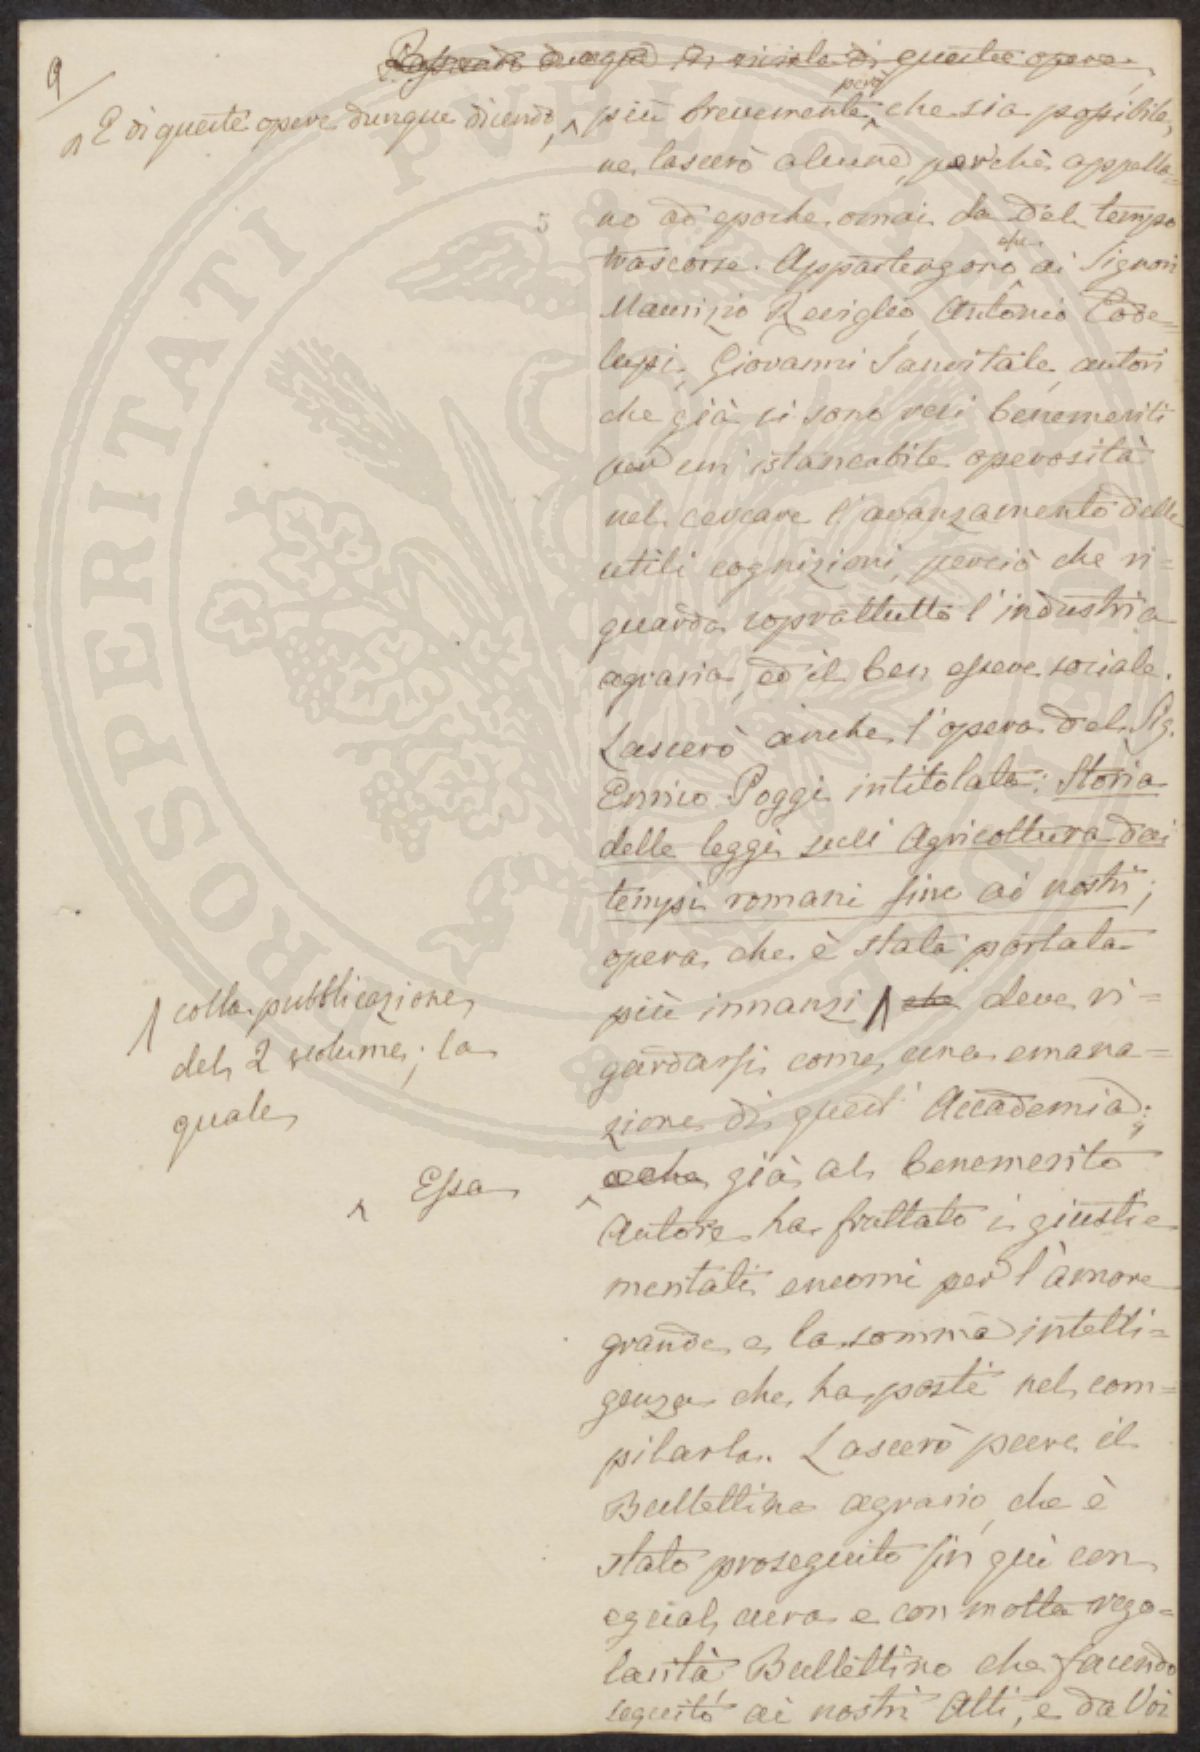 9
Passando dunque in rivista di queste opere,
E di queste opere dunque dicendo,
più brevemente però che sia possibile,
ne lascerò alcune, perchè appella=
no ad epoche omai da del tempo
trascorse. Appartengono che ai Signori
Maurizio Reviglio, Antonio Code=
lupi, Giovanni Sanvitale, autori
che già si sono resi benemeriti
per un'istancabile operosità
nel cercare l'avanzamento delle
utili cognizioni, perciò che ri=
guarda soprattutto l'industria
agraria, ed il ben essere sociale.
Lascerò anche l'opera del Sig.
Enrico Poggi intitolata: Storia
delle leggi sull'Agricoltura dai
tempi romani fino ai nostri;
opera che è stata portata
più innanzi che deve ri=
colla pubblicazione
del 2 volume; la
quale
gardarsi come una emana=
zione di quest'Accademia;
e che già al benemerito
Essa
Autore ha fruttato i giusti e
meritati encomi per l'amore
grande e la somma intelli=
genza che ha posti nel com=
pilarla. Lascerò pure il
Bullettino agrario, che è
stato proseguito sin qui con
egual cura e con molta rego=
larità, Bullettino che facendo
seguito ai nostri Atti, e da Voi
PROSPERITATI PUBLICAE